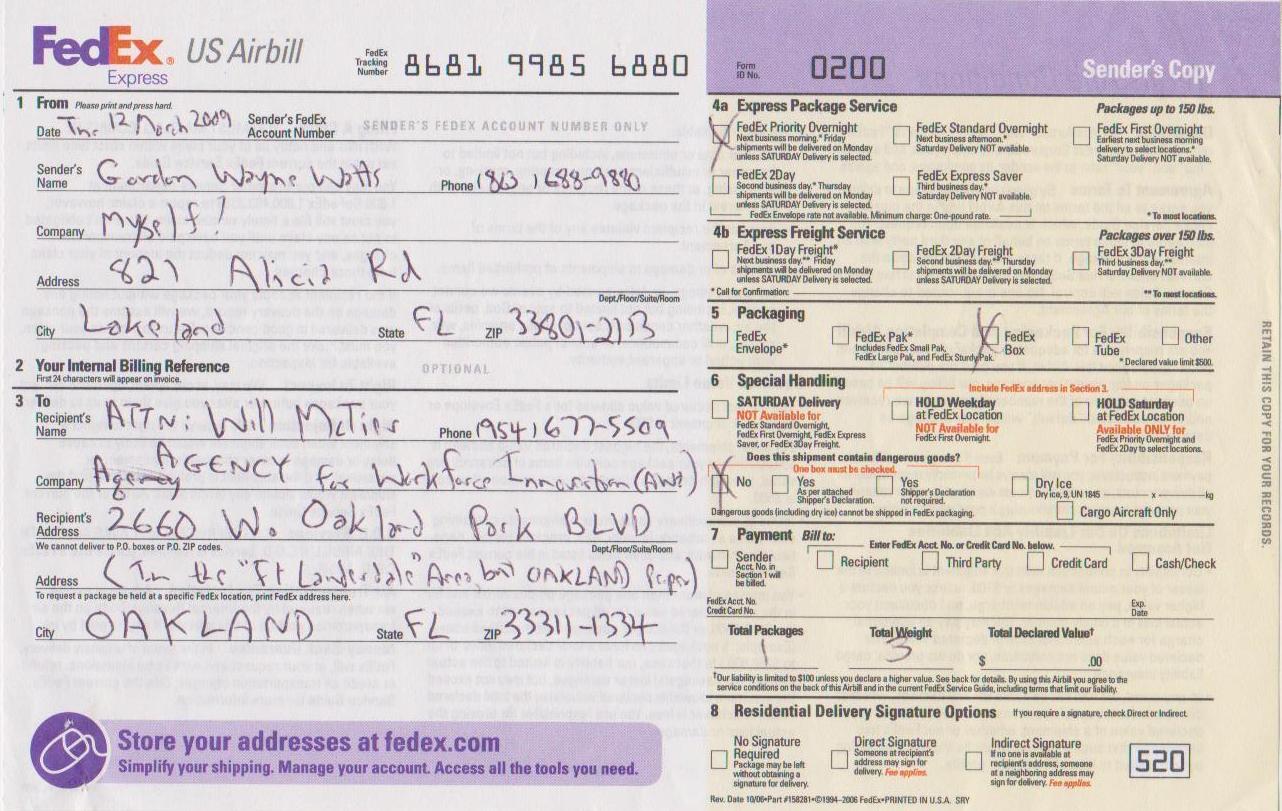 FedEx® US Airbill
Express
FedEx Tracking Number 8681 9985 6880
Form ID No. 0200 Sender's Copy
1 From Please print and press hard.
Date Thr 12 March 2009 Sender's FedEx Account Number SENDER'S FEDEX ACCOUNT NUMBER ONLY
Sender's Name Gordon Wayne Watts Phone (863) 688-9880
Company Myself
Address 821 Alicia Rd
Dept/Floor/Suite/Room
City Lakeland State FL ZIP 33801-2113
2 Your Internal Billing Reference OPTIONAL
First 24 characters will appear on invoice.
3 To
Recipient's Name ATTN: Will Phone (954) 677-5509
AGENCY
Company Agency for Workforce Innovation (AWI)
Recipient's Address 2660 W. Oakland Park BLVD
We cannot deliver to P.O. boxes or P.O. ZIP codes. Dept/Floor/Suite/Room
Address (In the "Ft Lauderdale" Area but OAKLAND Proper)
To request a package be held at a specific FedEx location, print FedEx address here.
City OAKLAND State FL ZIP 33311-1334
Store your addresses at fedex.com
Simplify your shipping. Manage your account. Access all the tools you need.
4a Express Package Service Packages up to 150 lbs.
FedEx Priority Overnight
Next business morning.* Friday
shipments will be delivered on Monday
unless SATURDAY Delivery is selected.
FedEx Standard Overnight
Next business afternoon.*
Saturday Delivery NOT available.
FedEx First Overnight
Earliest next business morning
delivery to select locations.*
Saturday Delivery NOT available.
FedEx 2Day
Second business day.* Thursday
shipments will be delivered on Monday
unless SATURDAY Delivery is selected.
FedEx Express Saver
Third business day.*
Saturday Delivery NOT available.
FedEx Envelope rate not available. Minimum charge: One-pound rate. * To most locations.
4b Express Freight Service Packages over 150 lbs.
FedEx 1Day Freight*
Next business day.** Friday
shipments will be delivered on Monday
unless SATURDAY Delivery is selected.
FedEx 2Day Freight
Second business day.** Thursday
shipments will be delivered on Monday
unless SATURDAY Delivery is selected.
FedEx 3Day Freight
Third business day.**
Saturday Delivery NOT available.
* Call for Confirmation: ** To most locations.
5 Packaging
FedEx Envelope*
FedEx Pak*
Includes FedEx Small Pak,
FedEx Large Pak, and FedEx Sturdy Pak.
FedEx Box
FedEx Tube
Other
* Declared value limit $500.
6 Special Handling Include FedEx address in Section 3.
SATURDAY Delivery
NOT Available for
FedEx Standard Overnight,
FedEx First Overnight, FedEx Express
Saver, or FedEx 3Day Freight.
HOLD Weekday
at FedEx Location
NOT Available for
FedEx First Overnight.
HOLD Saturday
at FedEx Location
Available ONLY for
FedEx Priority Overnight and
FedEx 2Day to select locations.
Does this shipment contain dangerous goods?
One box must be checked.
No
Yes
As per attached
Shipper's Declaration.
Yes
Shipper's Declaration
not required.
Dry Ice
Dry ice, 9, UN 1845 x kg
Dangerous goods (including dry ice) cannot be shipped in FedEx packaging. Cargo Aircraft Only
7 Payment Bill to:
Enter FedEx Acct. No. or Credit Card No. below.
Sender
Acct. No. in
Section 1 will
be billed.
Recipient Third Party Credit Card Cash/Check
FedEx Acct. No.
Credit Card No.
Exp. Date
Total Packages Total Weight Total Declared Value†
1 3 $ .00
†Our liability is limited to $100 unless you declare a higher value. See back for details. By using this Airbill you agree to the
service conditions on the back of this Airbill and in the current FedEx Service Guide, including terms that limit our liability.
8 Residential Delivery Signature Options If you require a signature, check Direct or Indirect.
No Signature
Required
Package may be left
without obtaining a
signature for delivery.
Direct Signature
Someone at recipient's
address may sign for
delivery. Fee applies.
Indirect Signature
If no one is available at
recipient's address, someone
at a neighboring address may
sign for delivery. Fee applies.
520
Rev. Date 10/06•Part #158281•©1994–2006 FedEx•PRINTED IN U.S.A. SRY
RETAIN THIS COPY FOR YOUR RECORDS.